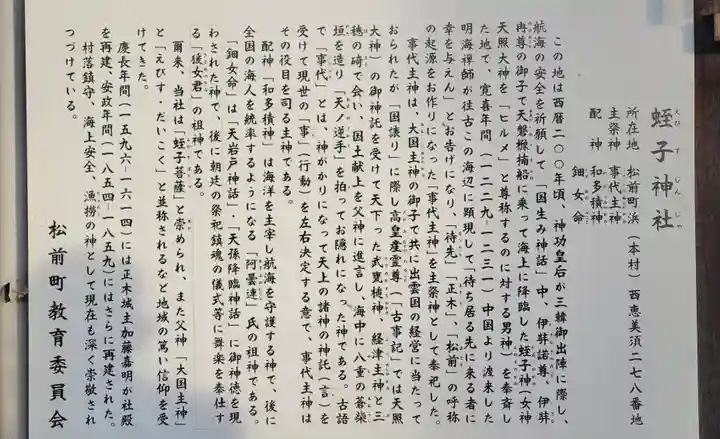 えびすじんじゃ
蛭子神社
所在地　松前町浜（本村）西恵美須二七八番地
主祭神　事代主神
配神　和多積神
鈿女命
この地は西暦二〇〇年頃、神功皇后が三韓御出陣に際し、
航海の安全を祈願して「国生み神話」中、伊弉諾尊、伊弉
冉尊の御子で天磐櫲樟船に乗って海上に降臨した蛭子神（女神
天照大神を「ヒルメ」と尊称するのに対する男神）を奉斎し
た地で、寛喜年間（一二二九－一二三一）中国より渡来した
明海禅師が往古この海辺に顕現して「待ち居る先に来る者に
幸を与えん」とお告げになり、「待先」「正木」、「松前」の呼称
の起源をお作りになった「事代主神」を主祭神として奉祀した。
事代主神は、大国主神の御子で共に出雲国の経営に当たって
おられたが「国譲り」に際し高皇産霊尊、「古事記」では天照
大神」の御神託を受けて天下った武甕槌神、経津主神と三
穂の碕で会い、国土献上を父神に進言し、海中に八重の蒼柴
垣を造り「天ノ逆手」を拍ってお隠れになった神である。古語
で「事代」とは、神がかりになって天上の諸神の神託（言）を
受けて現世の「事」（行動）を左右決定する意で、事代主神は
その役目を司る主神である。
配神「和多積神」は海洋を主宰し航海を守護する神で、後に
全国の海人を統率するようになる「阿曇連」氏の祖神である。
「鈿女命」は「天岩戸神話」・「天孫降臨神話」に御神徳を現
わされた神で、後に朝廷の祭祀鎮魂の儀式等に舞楽を奉仕す
る「猿女君」の祖神である。
爾来、当社は「蛭子菩薩」と崇められ、また父神「大国主神」
と「えびす・だいこく」と並称されるなど地域の篤い信仰を受
けてきた。
慶長年間（一五九六－一六一四）には正木城主加藤嘉明が社殿
を再建、安政年間（一八五四－一八五九）にはさらに再建された。
村落鎮守、海上安全、漁撈の神として現在も深く崇敬され
つづけている。
松前町教育委員会